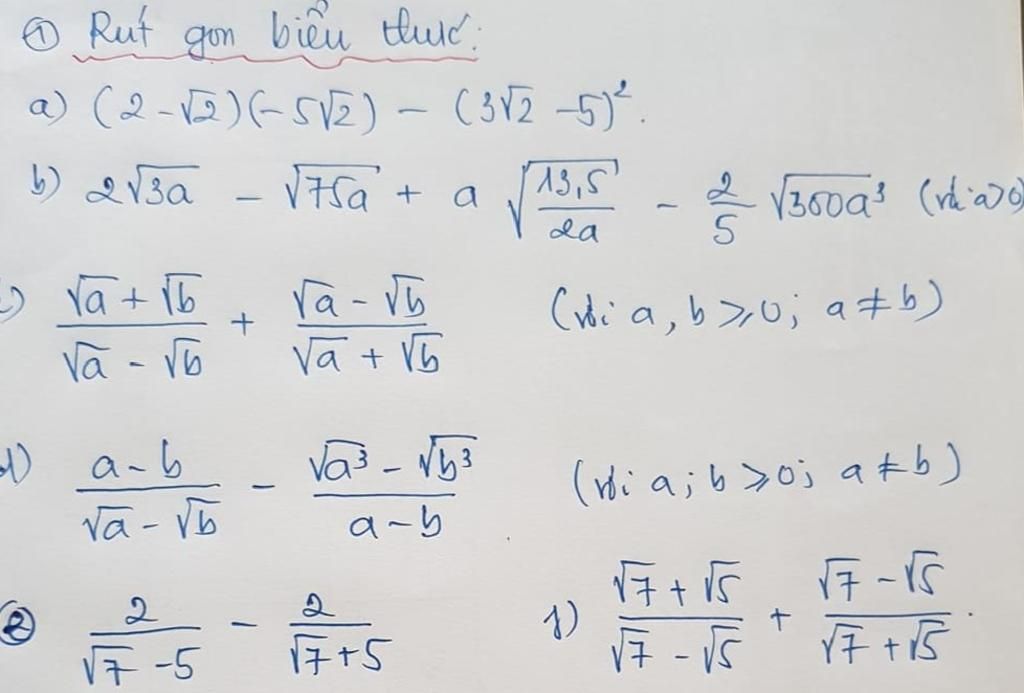 ① Rút gọn biểu thức:
a) (2 - √2)(-5√2) - (3√2 - 5)².
b) 2√3a - √75a + a √(13,5/2a) - 2/5 √300a³ (với a>0)
c) (√a + √b)/(√a - √b) + (√a - √b)/(√a + √b) (với a, b ⩾ 0; a ≠ b)
d) (a - b)/(√a - √b) - (√a³ - √b³)/(a - b) (với a; b ⩾ 0; a ≠ b)
e) 2/(√7 - 5) - 2/(√7 + 5) f) (√7 + √5)/(√7 - √5) + (√7 - √5)/(√7 + √5).